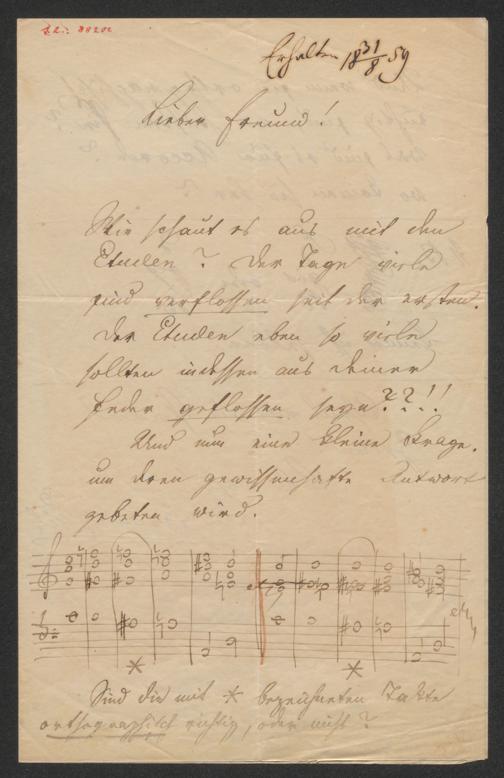 Erhalten 18 31/8 59
Lieber Freund!
Wie schaut es aus mit den
Etuden? Der Tage viele
sind verflossen seit der ersten.
Der Etuden eben so viele
sollten indessen aus Deiner
Feder geflossen seyn??!!
Und nun eine kleine Frage,
um deren gewissenhafte Antwort
gebeten wird.
etc
* *
Sind die mit * bezeichneten Takte
orthographisch richtig, oder nicht?